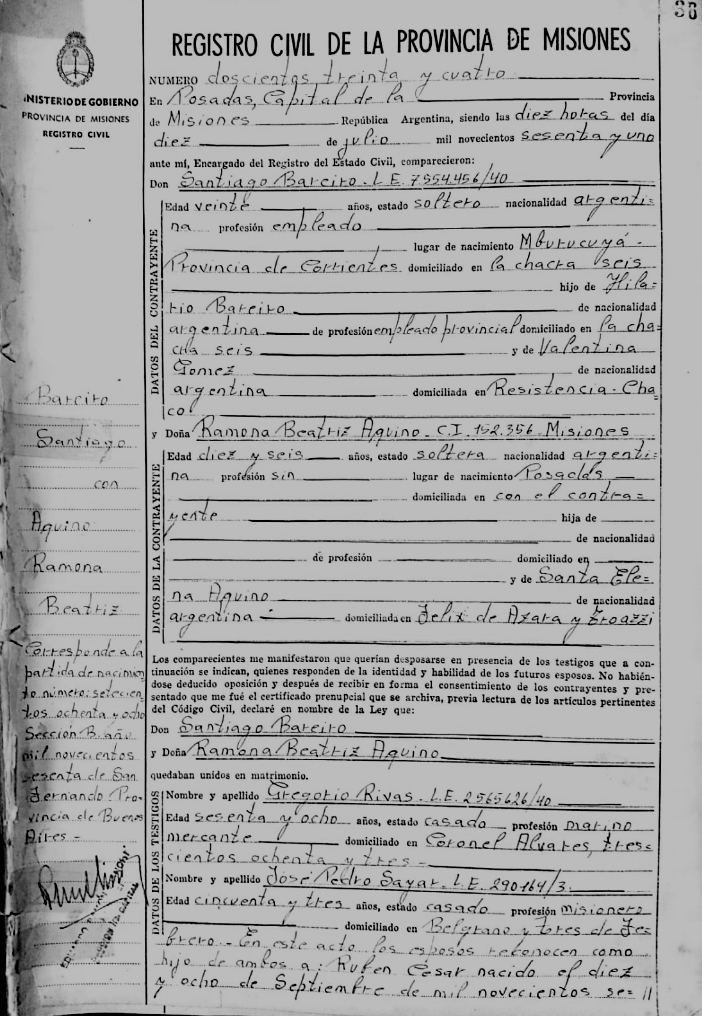 36
MINISTERIO DE GOBIERNO
PROVINCIA DE MISIONES
REGISTRO CIVIL
REGISTRO CIVIL DE LA PROVINCIA DE MISIONES
NUMERO doscientos treinta y cuatro
En Posadas, Capital de la Provincia
de Misiones República Argentina, siendo las diez horas del día
diez de julio mil novecientos sesenta y uno
ante mí, Encargado del Registro del Estado Civil, comparecieron:
Don Santiago Bareiro. L.E. 7554.456/40
DATOS DEL CONTRAYENTE
Edad veinte años, estado soltero nacionalidad argenti=
na profesión empleado
lugar de nacimiento Mburucuyá -
Provincia de Corrientes domiciliado en la chacra seis
hijo de Hila=
rio Bareiro de nacionalidad
argentina de profesión empleado provincial domiciliado en la cha=
cra seis y de Valentina
Gomez de nacionalidad
argentina domiciliada en Resistencia - Cha=
co
y Doña Ramona Beatriz Aquino - C.I. 152.356 Misiones
DATOS DE LA CONTRAYENTE
Edad diez y seis años, estado soltera nacionalidad argenti=
na profesión sin lugar de nacimiento Posadas
domiciliada en con el contra=
yente hija de
de nacionalidad
de profesión domiciliado en
y de Santa Ele=
na Aquino de nacionalidad
argentina - domiciliada en Felix de Azara y
Los comparecientes me manifestaron que querían desposarse en presencia de los testigos que a con-
tinuación se indican, quienes responden de la identidad y habilidad de los futuros esposos. No habién-
dose deducido oposición y después de recibir en forma el consentimiento de los contrayentes y pre-
sentado que me fué el certificado prenupcial que se archiva, previa lectura de los artículos pertinentes
del Código Civil, declaré en nombre de la Ley que:
Don Santiago Bareiro
y Doña Ramona Beatriz Aquino
quedaban unidos en matrimonio.
DATOS DE LOS TESTIGOS
Nombre y apellido Gregorio Rivas - L.E. 2565626/40
Edad sesenta y ocho años, estado casado profesión marino
mercante domiciliado en Coronel Alvares, tres=
cientos ochenta y tres -
Nombre y apellido José Pedro Sayar - L.E. 290164/3.
Edad cincuenta y tres años, estado casado profesión misionero
domiciliado en Belgrano y tres de Fe=
brero - En este acto los esposos reconocen como
hijo de ambos a: Ruben Cesar nacido el diez
y ocho de Septiembre de mil novecientos se= //
Bareiro
Santiago
con
Aquino
Ramona
Beatriz
Corresponde a la
partida de nacimien
to número: setecien
tos ochenta y ocho
Sección B. año
mil novecientos
sesenta de San
Fernando Pro-
vincia de Buenos
Aires -